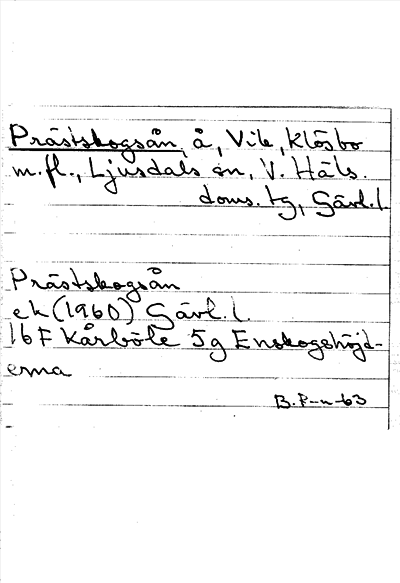 Prästskogsån, å, Vile, Klösbo
m.fl., Ljusdals sn, V. Häls.
doms. tg, Gävl.l.
Prästskogsån
ek (1960) Gävl.l.
16F Kårböle 5g Enskogshöjd-
erna
B.P-n-63